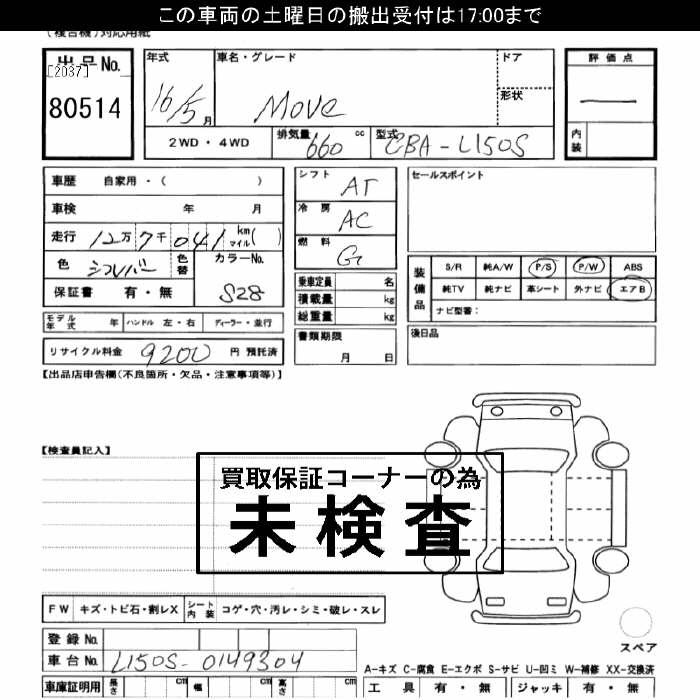 この車両の土曜日の搬出受付は17:00まで
(複合機)対応用紙
出品No.
[2037]
80514
年式
16/5月
車名・グレード
Move
ドア
形状
評価点
内装
2WD・4WD
排気量 660 cc
型式 CBA-L150S
車歴 自家用・( )
車検 年 月
走行 12万7千041 km マイル( )
色 シルバー 色替 カラーNo.
保証書 有・無 S28
モデル年式 年 ハンドル 左・右 ディーラー・並行
リサイクル料金 9200 円 預託済
シフト AT
冷房 AC
燃料 G
乗車定員 名
積載量 kg
総重量 kg
書類期限
月 日
セールスポイント
装備品
S/R 純A/W P/S P/W ABS
純TV 純ナビ 革シート 外ナビ エアB
ナビ型番:
後日品
【出品店申告欄(不良箇所・欠品・注意事項等)】
【検査員記入】
買取保証コーナーの為
未検査
FW キズ・トビ石・割レX シート内装 コゲ・穴・汚レ・シミ・破レ・スレ
登録No.
車台No. L150S-0149304
車庫証明用 長さ cm 幅 cm 高さ cm
スペア
A-キズ C-腐食 E-エクボ S-サビ U-凹ミ W-補修 XX-交換済
工具 有・無 ジャッキ 有・無